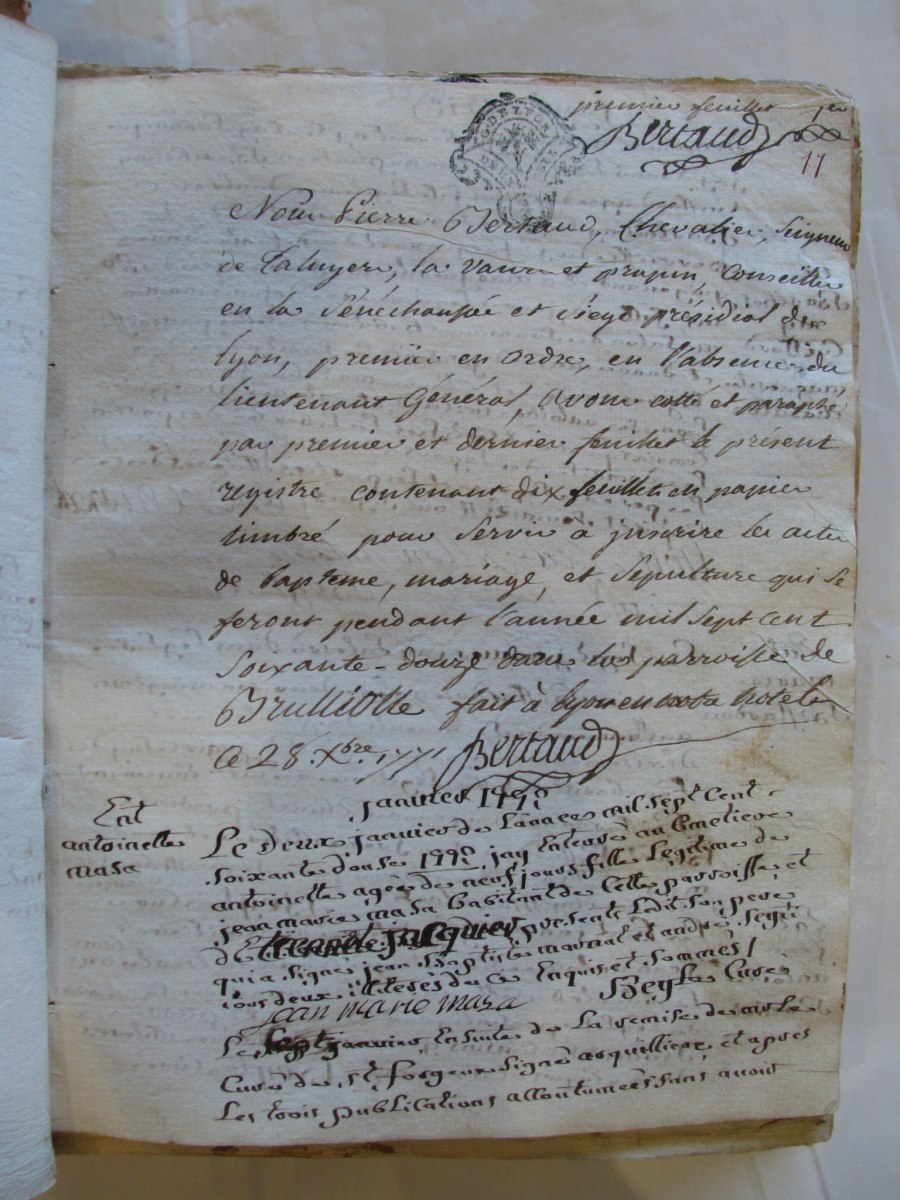 premier feuillet
Bertaud
11
Nous Pierre Bertaud, Chevalier, Seigneur
de Taluyers, la Vaure et propin, Conseiller
en la Sénéchaussée et siège présidial de
Lyon, premier en ordre, en l'absence du
lieutenant Général, avons cotté et paraphé
par premier et dernier feuillet le présent
registre contenant dix feuillets en papier
timbré pour servir a jnscrire les actes
de baptême, mariage, et sépulture qui se
feront pendant l'année mil sept cent
soixante-douze dans la parroisse de
Brulliolle fait à Lyon en notre hotel
Ce 28. Xbre. 1771 Bertaud
janvier 1772
Ent
antoinette
masa
Le deux janvier de Lannee mil sept cent
soixante douse 1772 jay enterré au Cimetiere
antoinette agée de neuf jours fille Legitime de
jean marie masa habitant de Cette parroisse, et
de Etiennete jacquier present Ledit son pere
qui a signe jean Baptiste et andré
tous deux illiteres de ce Enquis et sommes /
jean marie masa Curé
Le sept janvier Ensuite de La remise de mr le
Curé de St forgeux signé arquilliere, et apres
Les trois publications accoutumees sans avoir